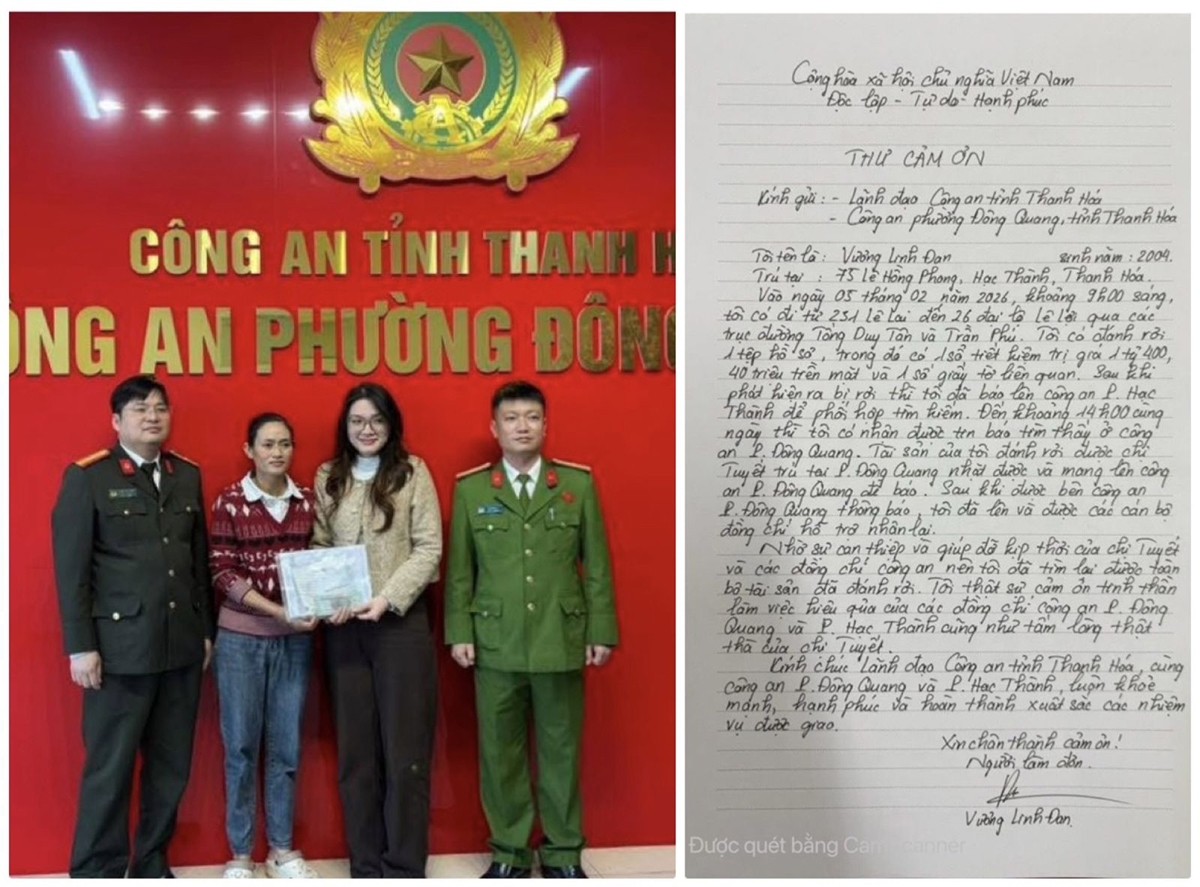 CÔNG AN TỈNH THANH H
ÔNG AN PHƯỜNG ĐÔNG
Cộng hòa xã hội chủ nghĩa Việt Nam
Độc lập - Tự do - Hạnh phúc
THƯ CẢM ƠN
Kính gửi : - Lãnh đạo Công an tỉnh Thanh Hóa
- Công an phường Đông Quang, tỉnh Thanh Hóa
Tôi tên là : Vương Linh Đan sinh năm : 2004.
Trú tại : 75 Lê Hồng Phong, Hạc Thành, Thanh Hóa.
Vào ngày 05 tháng 02 năm 2026, khoảng 9h00 sáng,
tôi có đi từ 251 Lê Lai đến 26 đại lộ Lê Lợi qua các
trục đường Tống Duy Tân và Trần Phú. Tôi có đánh rơi
1 tệp hồ sơ, trong đó có 1 sổ tiết kiệm trị giá 1 tỷ 400,
40 triệu tiền mặt và 1 số giấy tờ liên quan. Sau khi
phát hiện ra bị rơi thì tôi đã báo lên công an P. Hạc
Thành để phối hợp tìm kiếm. Đến khoảng 14h00 cùng
ngày thì tôi có nhận được tin báo tìm thấy ở công
an P. Đông Quang. Tài sản của tôi đánh rơi được chị
Tuyết trú tại P. Đông Quang nhặt được và mang lên công
an P. Đông Quang để báo. Sau khi được bên công an
P. Đông Quang thông báo, tôi đã lên và được các cán bộ
đồng chí hỗ trợ nhận lại.
Nhờ sự can thiệp và giúp đỡ kịp thời của chị Tuyết
và các đồng chí công an nên tôi đã tìm lại được toàn
bộ tài sản đã đánh rơi. Tôi thật sự cảm ơn tinh thần
làm việc hiệu qủa của các đồng chí công an P. Đông
Quang và P. Hạc Thành cũng như tấm lòng thật
thà của chị Tuyết.
Kính chúc Lãnh đạo Công an tỉnh Thanh Hóa, cùng
công an P. Đông Quang và P. Hạc Thành, luôn khỏe
mạnh, hạnh phúc và hoàn thành xuất sắc các nhiệm
vụ được giao.
Xin chân thành cảm ơn!
Người làm đơn.
Vương Linh Đan.
Được quét bằng CamScanner